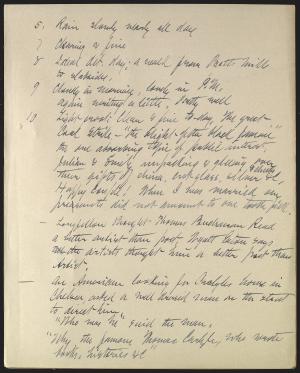 5, Rain slowly nearly all day
7 Clearing & fine
8 Local Art. day; a walk from Bath Mills
to
9 Cloudy in morning, lovely in P.M.
again writing a little, pretty well
10 Light frost: clear & fine to-day. The great
Coal Strike - "the bright-pots Coal famine"
the one absorbing topic of public interest.
Julian & Emily unpacking & gloating over
their gifts of china, cut glass, silver &c,
Happy couple! When I was married our
presents did not amount to one tooth pick.
Longfellow thought Thomas Buchanan Read
a better artist than poet. Wyatt Eaton says
the artists thought him a better poet than
Artist.
An American looking for Carlyle's house in
Chelsea asked a well dressed man on the street
to direct him,
"Who was he" said the man.
"Why the famous Thomas Carlyle, who wrote
books, histories &c"